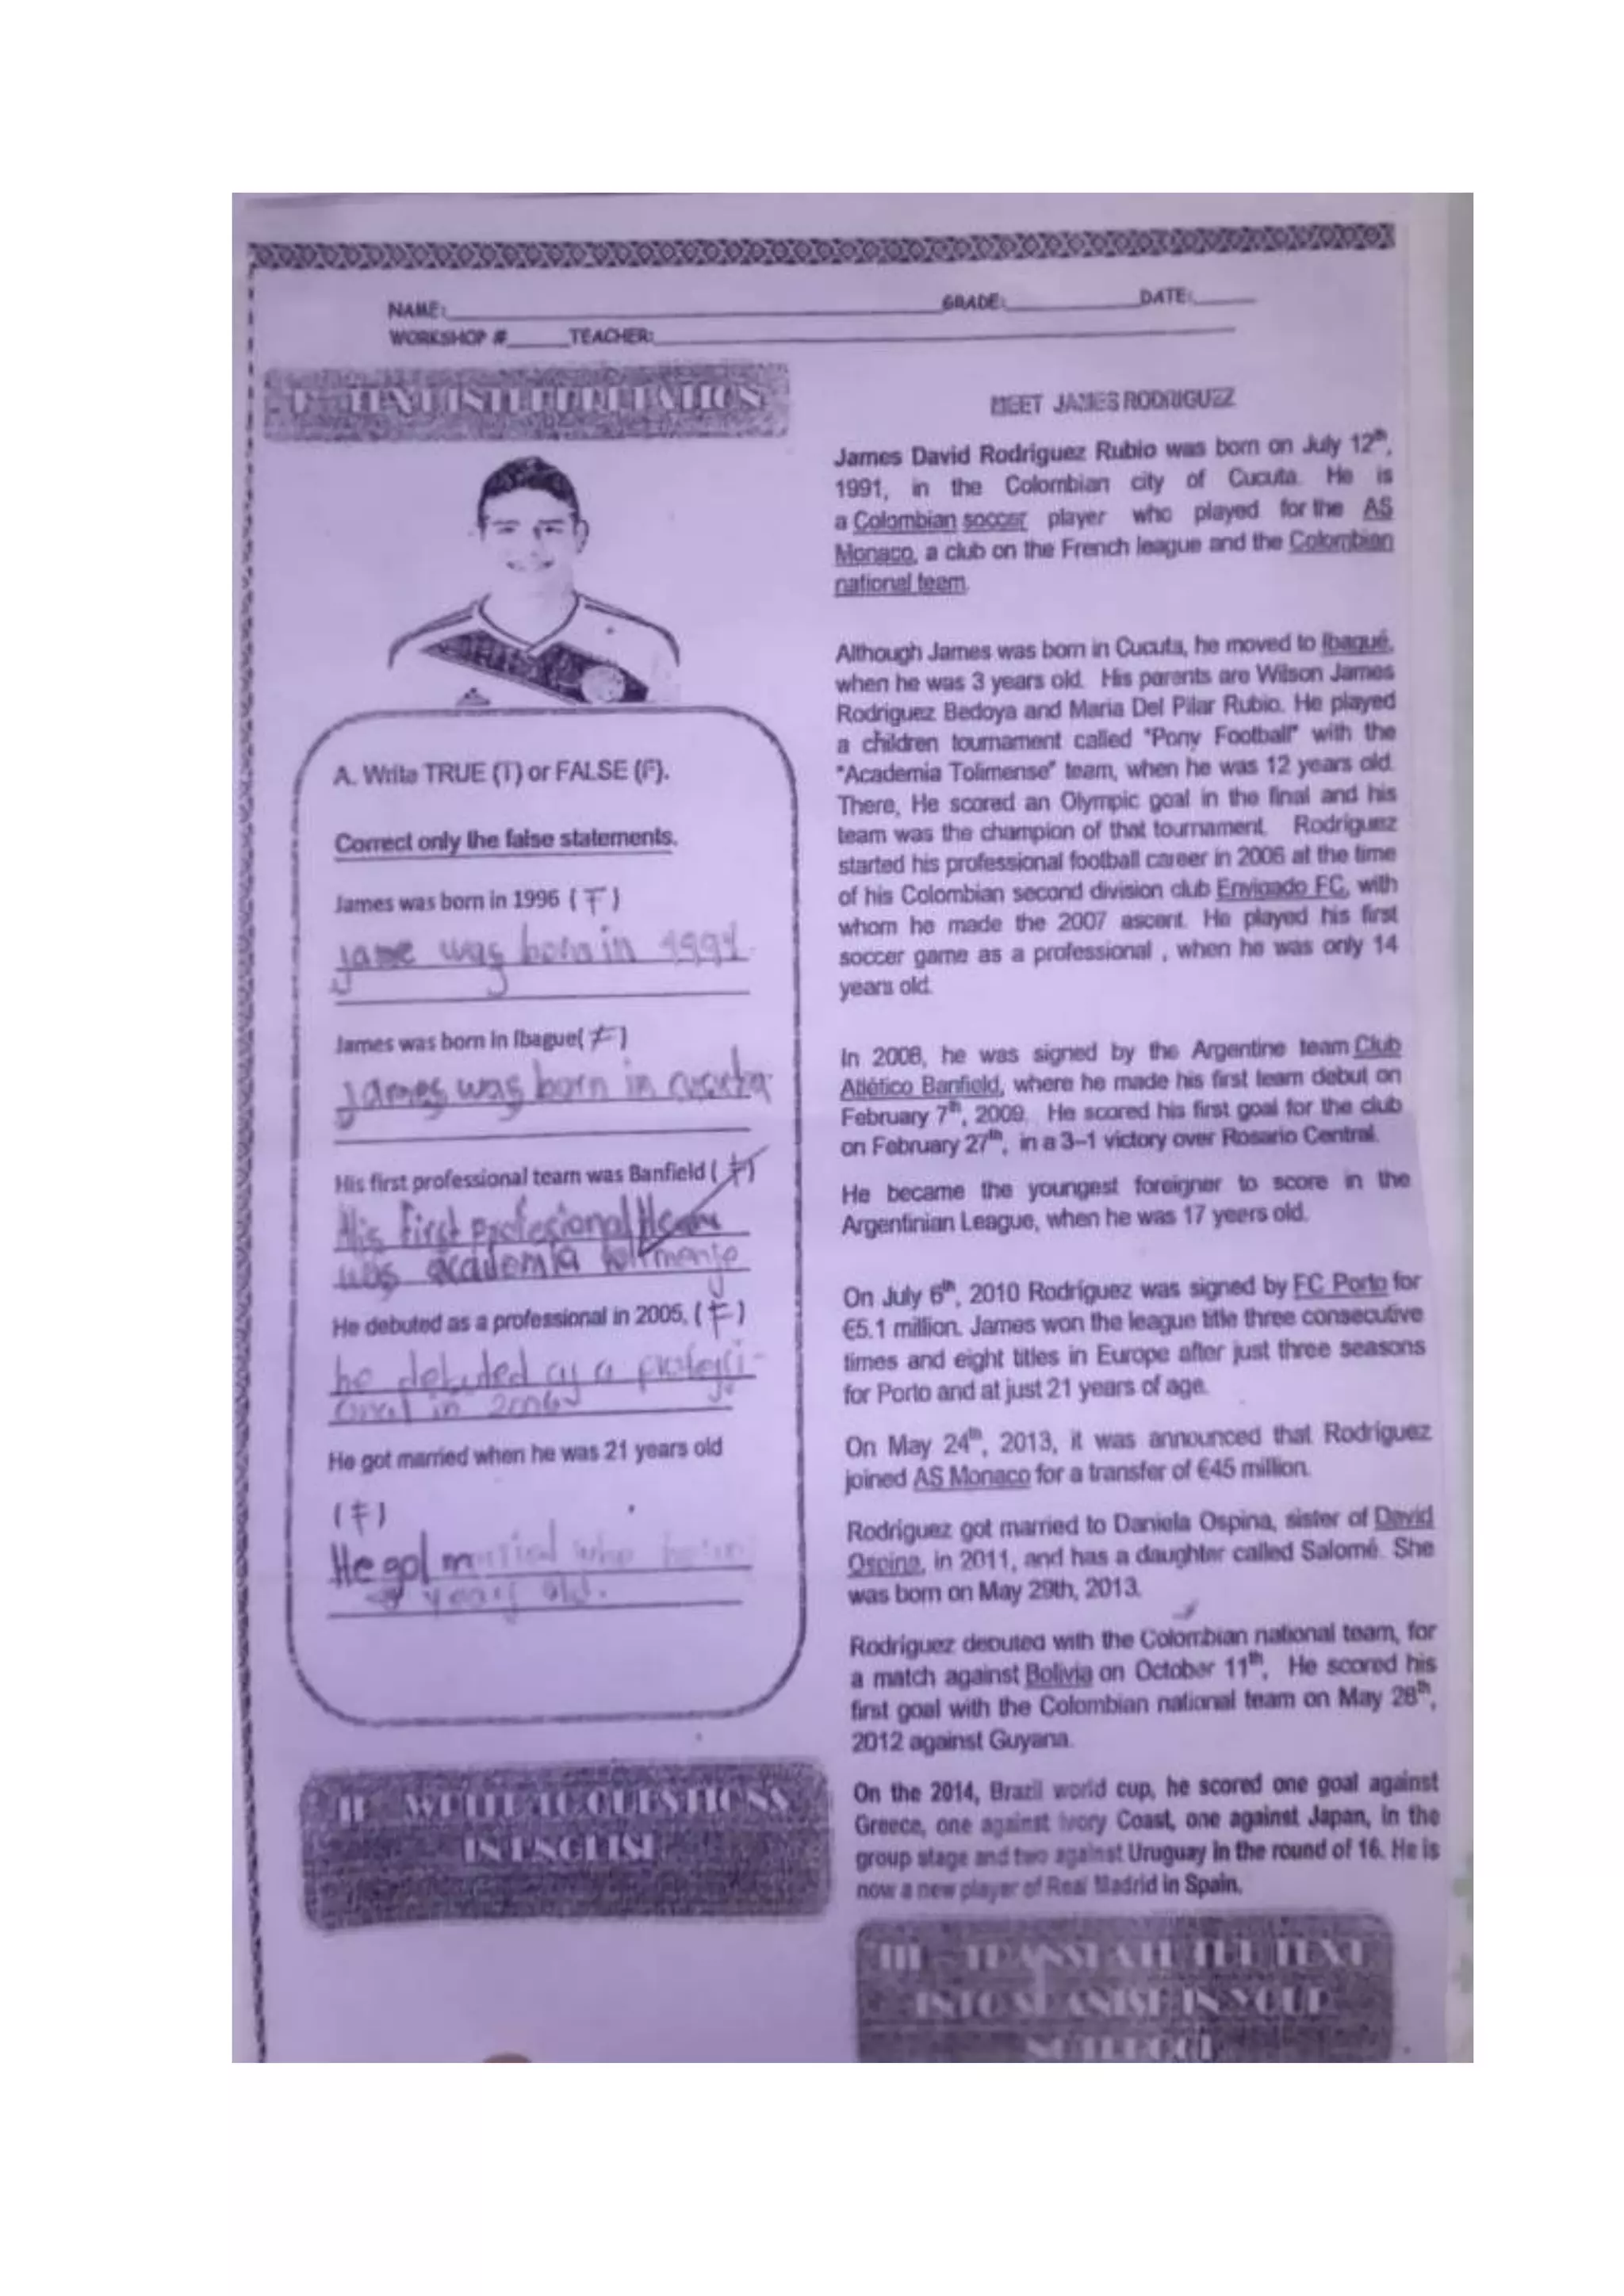 NAME: GRADE: DATE:
WORKSHOP # TEACHER:
I - TEXT INTERPRETATION
A. Write TRUE (T) or FALSE (F).
Correct only the false statements.
James was born in 1996 ( F )
jame was born in 1991
James was born in Ibague( F )
James was born in cucuta
His first professional team was Banfield ( F )
His first profesional team
was academia tolimense
He debuted as a professional in 2005, ( F )
he debuted as a profesi-
onal in 2006
He got married when he was 21 years old
( F )
He got married
years old.
II WRITE 10 QUESTIONS
IN ENGLISH
MEET JAMES RODRIGUEZ
James David Rodriguez Rubio was born on July 12th,
1991, in the Colombian city of Cucuta. He is
a Colombian soccer player who played for the AS
Monaco, a club on the French league and the Colombian
national team.
Although James was born in Cucuta, he moved to Ibagué,
when he was 3 years old. His parents are Wilson James
Rodriguez Bedoya and Maria Del Pilar Rubio. He played
a children tournament called "Pony Football" with the
"Academia Tolimense" team, when he was 12 years old.
There, He scored an Olympic goal in the final and his
team was the champion of that tournament. Rodriguez
started his professional football career in 2006 at the time
of his Colombian second division club Envigado FC, with
whom he made the 2007 ascent. He played his first
soccer game as a professional , when he was only 14
years old.
In 2008, he was signed by the Argentine team Club
Atlético Banfield, where he made his first team debut on
February 7th, 2009. He scored his first goal for the club
on February 27th, in a 3–1 victory over Rosario Central.
He became the youngest foreigner to score in the
Argentinian League, when he was 17 years old.
On July 6th, 2010 Rodríguez was signed by FC Porto for
€5.1 million. James won the league title three consecutive
times and eight titles in Europe after just three seasons
for Porto and at just 21 years of age.
On May 24th, 2013, it was announced that Rodríguez
joined AS Monaco for a transfer of €45 million.
Rodríguez got married to Daniela Ospina, sister of David
Ospina, in 2011, and has a daughter called Salomé. She
was born on May 29th, 2013.
Rodríguez debuted with the Colombian national team, for
a match against Bolivia on October 11th. He scored his
first goal with the Colombian national team on May 28th,
2012 against Guyana.
On the 2014, Brazil world cup, he scored one goal against
Greece, one against Ivory Coast, one against Japan, in the
group stage and two against Uruguay in the round of 16. He is
now a new player of Real Madrid in Spain.
III - TRANSLATE THE TEXT
INTO SPANISH IN YOUR
NOTEBOOK